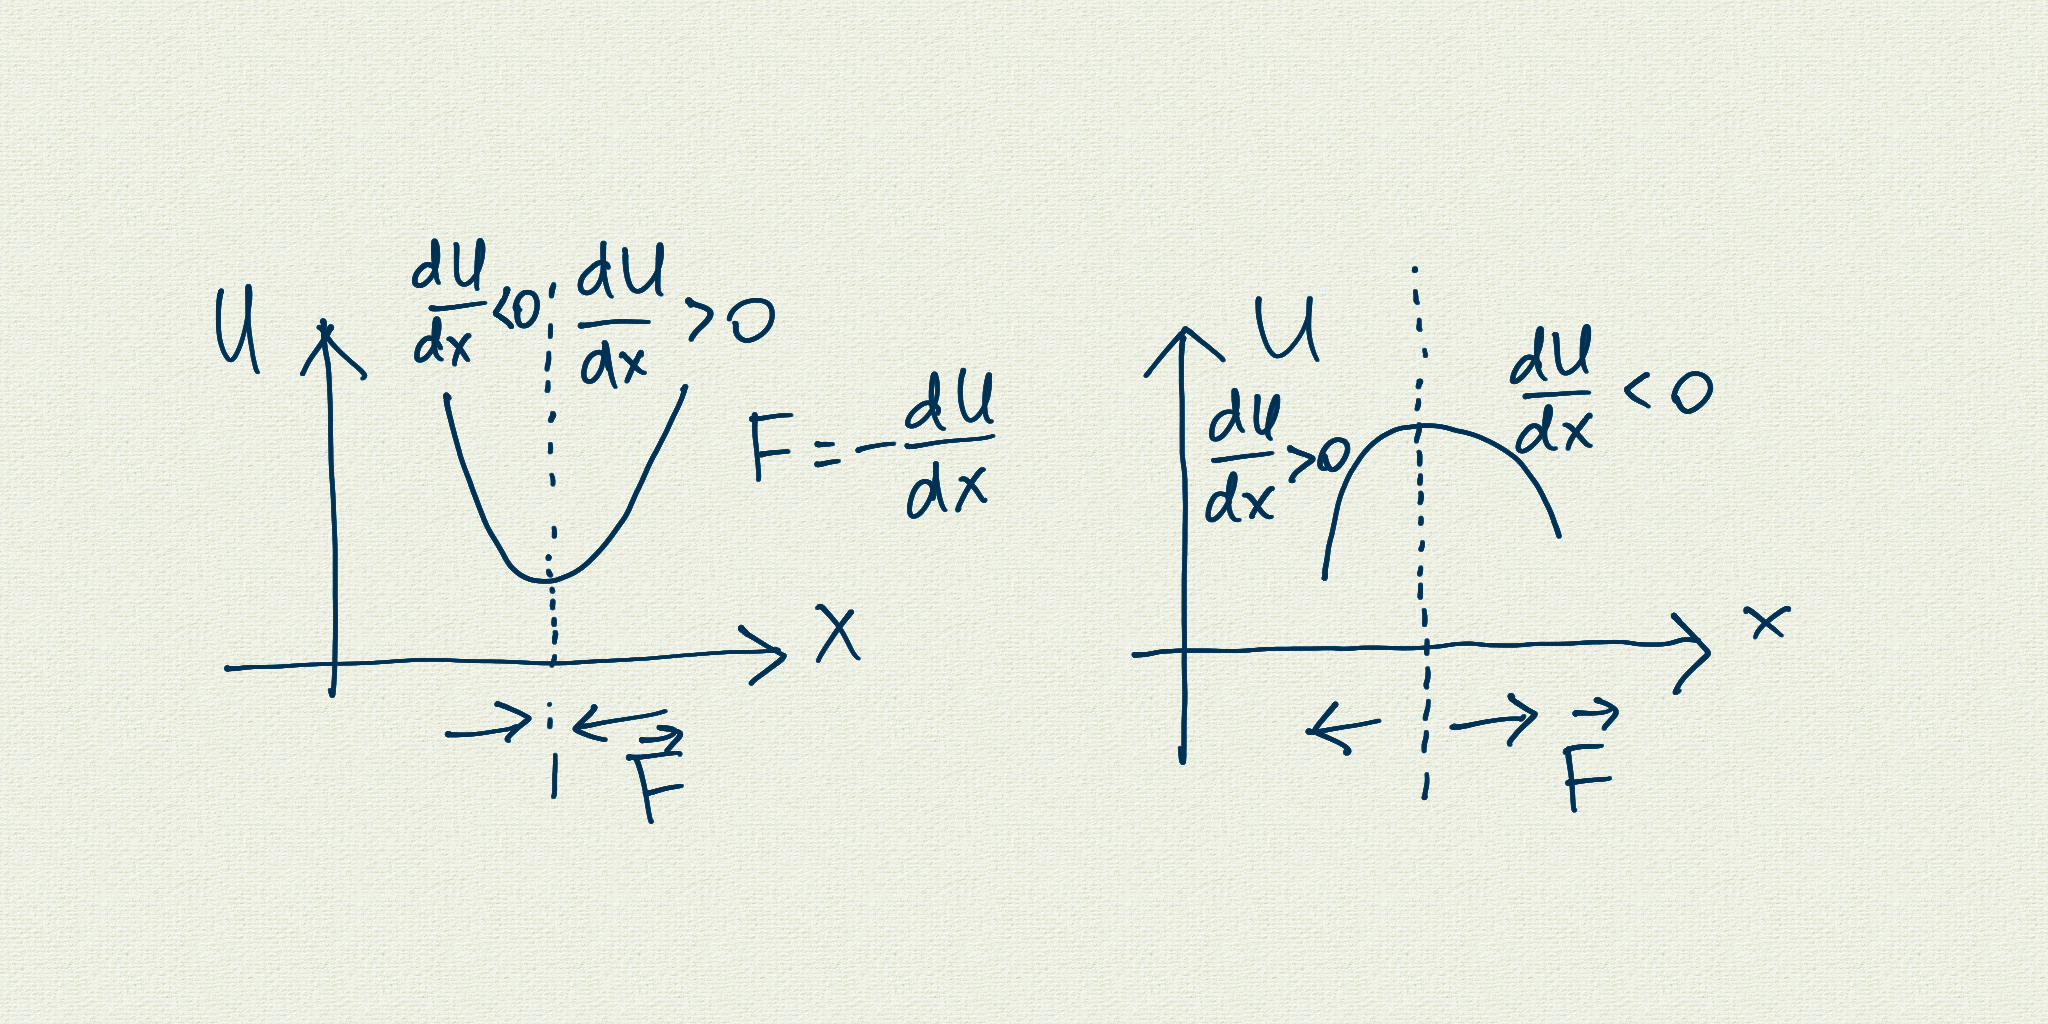 U
dU/dx <0
dU/dx >0
F = - dU/dx
X
F⃗
U
dU/dx >0
dU/dx < 0
x
F⃗